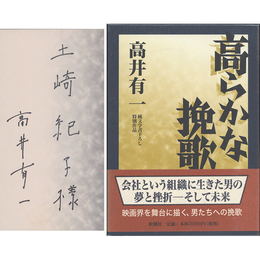 土崎紀子様
高井有一
高らかな
挽歌
高井有一
純文学書下ろし
特別作品
会社という組織に生きた男の
夢と挫折―そして未来
映画界を舞台に描く、男たちへの挽歌
新潮社